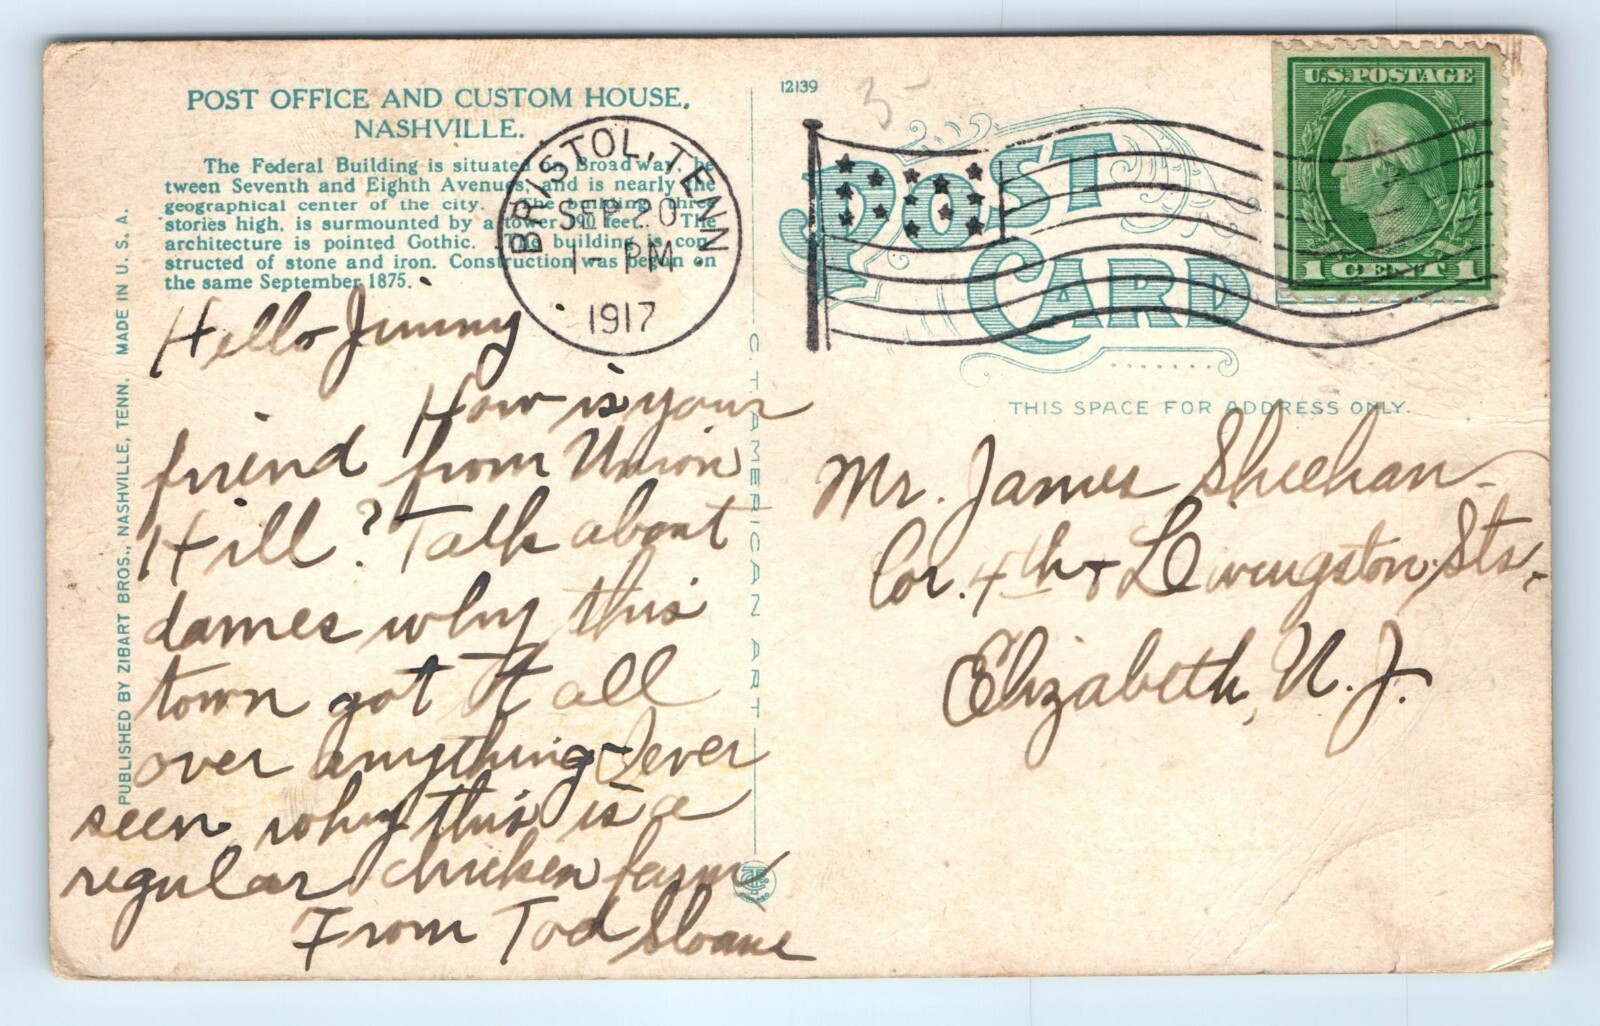 POST OFFICE AND CUSTOM HOUSE,
NASHVILLE.
The Federal Building is situated on Broadway, be
tween Seventh and Eighth Avenues, and is nearly the
geographical center of the city. The building, three
stories high, is surmounted by a tower 190 feet. The
architecture is pointed Gothic. The building is con
structed of stone and iron. Construction was begun on
the same September 1875.
PUBLISHED BY ZIBART BROS., NASHVILLE, TENN. MADE IN U. S. A.
BRISTOL, TENN
SEP 20
1 - PM
1917
12139
3-
POST
CARD
U.S. POSTAGE
1 CENT 1
C. T. AMERICAN ART
THIS SPACE FOR ADDRESS ONLY.
Hello Jimmy
How is your
friend from Union
Hill? Talk about
dames why this
town got it all
over anything I ever
seen why this is a
regular chicken farm
From Tod Sloane
Mr. James Sheehan
Cor. 4th & Livingston Sts.
Elizabeth, N. J.